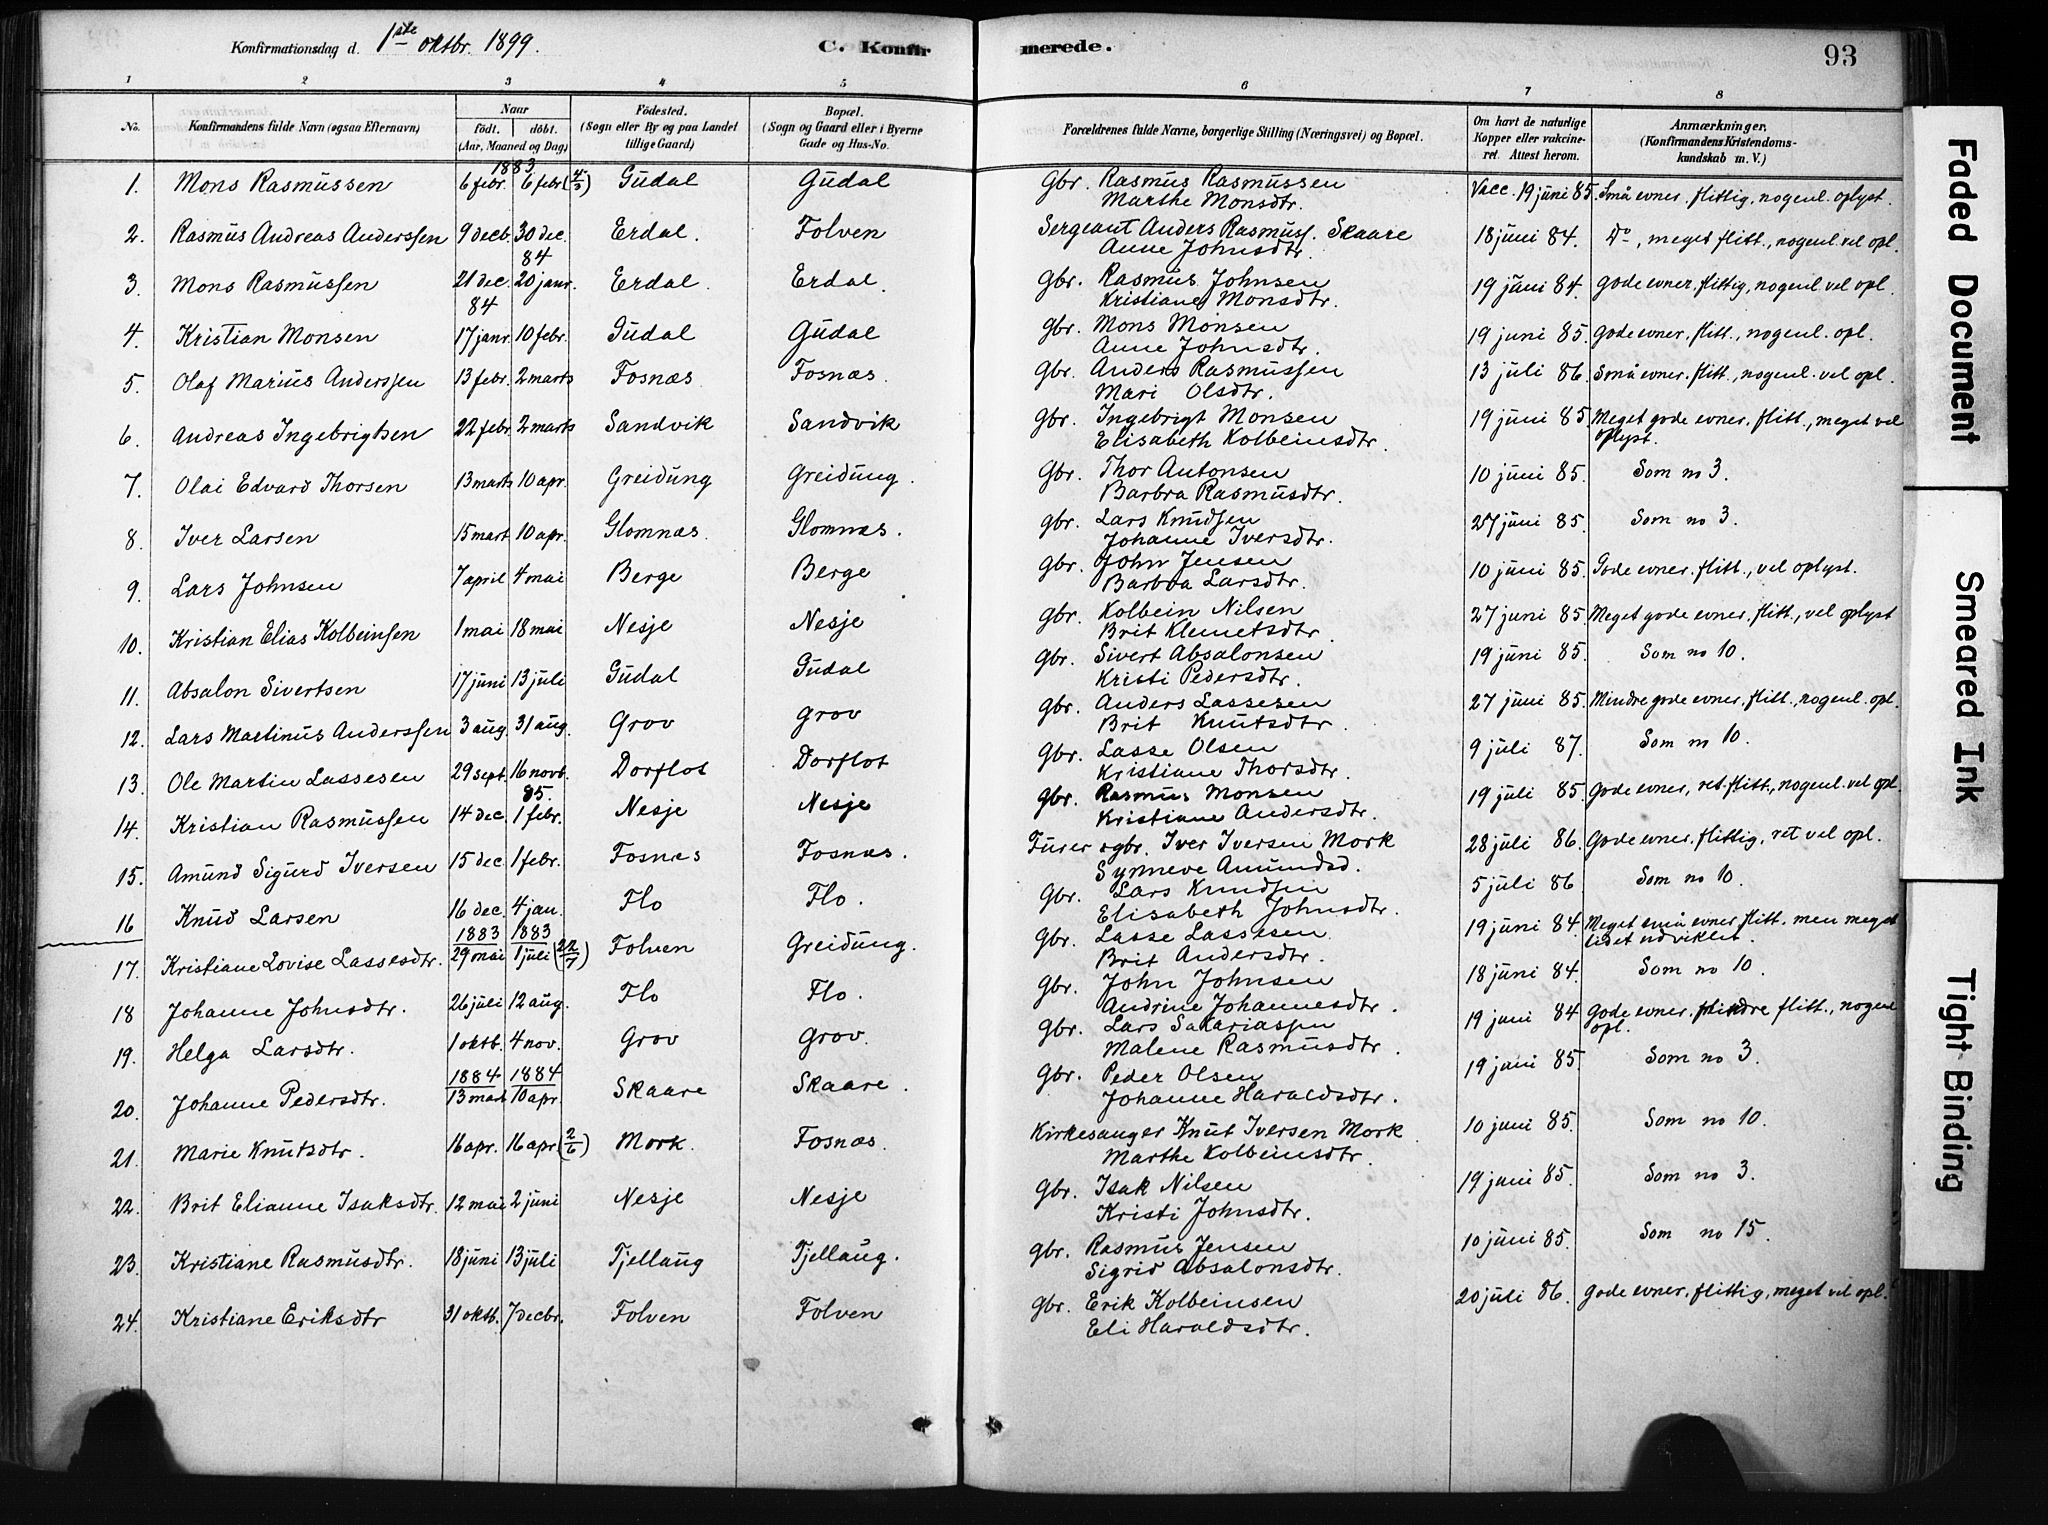 Konfirmationsdag d. 1ste oktbr. 1899. C. Konfirmerede. 93
1 2 3 4 5 6 7 8
No. Konfirmandens fulde Navn (ogsaa Efternavn) Naar födt. döbt. (Aar, Maaned og Dag) Födested. (Sogn eller By og paa Landet tillige Gaard) Bopæl. (Sogn og Gaard eller i Byerne Gade og Hus-No. Forældrenes fulde Navne, borgerlige Stilling (Næringsvei) og Bopæl. Om havt de naturlige Kopper eller vakcineret. Attest herom. Anmærkninger, (Konfirmandens Kristendomskundskab m. V.)
1883
1. Mons Rasmussen 6 febr. 6 febr (4/3) Gudal Gudal Gbr. Rasmus Rasmussen Vacc. 19 juni 85. Små evner. flittig, nogenl. oplyst.
Marthe Monsdtr.
2. Rasmus Andreas Anderssen 9 decb. 30 dec. Erdal. Folven Sergeant Anders Rasmuss. Skaare 18 juni 84. Do, meget flitt., nogenl. vel opl.
Anne Johnsdtr.
84
3. Mons Rasmussen 21 dec. 20 janr. Erdal. Erdal. Gbr. Rasmus Johnsen 19 juni 84. gode evner, flittig, nogenl. vel opl.
Kristiane Monsdtr.
84
4. Kristian Monsen 17 janr. 10 febr. Gudal Gudal Gbr. Mons Monsen 19 juni 85. gode evner. flitt., nogenl. opl.
Anne Johnsdtr.
5. Olaf Marius Anderssen 13 febr. 2 marts Fosnæs Fosnæs. Gbr. Anders Rasmussen 13 juli 86. Små evner. flitt., nogenl. vel opl.
Mari Olsdtr.
6. Andreas Ingebrigtsen 22 febr. 2 marts Sandvik Sandvik Gbr. Ingebrigt Monsen 19 juni 85. Meget gode evner. flitt., meget vel oplyst.
Elisabeth Kolbeinsdtr.
7. Olai Edvard Thorsen 13 marts 10 apr. Greidung Greidung. Gbr. Thor Antonsen 10 juni 85. Som no 3.
Barbra Rasmusdtr.
8. Iver Larsen 15 mart 10 apr. Glomnæs. Glomnæs. Gbr. Lars Knudsen 27 juni 85. Som no 3.
Johanne Iversdtr.
9. Lars Johnsen 7 april 4 mai Berge Berge Gbr. John Jensen 10 juni 85. Gode evner. flitt., vel oplyst.
Barbra Larsdtr.
10. Kristian Elias Kolbeinsen 1 mai 18 mai Nesje Nesje Gbr. Kolbein Nilsen 27 juni 85. Meget gode evner. flitt., vel oplyst
Brit Klemetsdtr.
11. Absalon Sivertsen 17 juni 13 juli Gudal Gudal Gbr. Sivert Absalonsen 19 juni 85. Som no 10.
Kristi Pedersdtr.
12. Lars Martinus Anderssen 3 aug. 31 aug. Grov Grov Gbr. Anders Lassesen 27 juni 85. Mindre gode evner. flitt., nogenl. opl.
Brit Knutsdtr.
13. Ole Martin Lassesen 29 sept. 16 novb. Dorflot Dorflot Gbr. Lasse Olsen 9 juli 87. Som no 10.
Kristiane Thorsdtr.
85.
14. Kristian Rasmussen 14 dec. 1 febr. Nesje Nesje Gbr. Rasmus Monsen 19 juli 85. Gode evner, ret flitt., nogenl. vel opl.
Kristiane Andersdtr.
15. Amund Sigurd Iversen 15 dec. 1 febr. Fosnæs Fosnæs. Furer ogbr. Iver Iversen Mork 28 juli 86. Gode evner. flittig, ret vel opl.
Synneve Amundsd.
16 Knud Larsen 16 dec. 4 jan. Flo Flo. Gbr. Lars Knudsen 5 juli 86 Som no 10.
Elisabeth Johnsdtr.
1883 1883
17. Kristiane Lovise Lassesdtr. 29 mai 1 juli (22/7) Folven Greidung. Gbr. Lasse Lassesen 19 juni 84. Meget små evner. flitt. men meget lidet udviklet.
Brit Andersdtr.
18 Johanne Johnsdtr. 26 juli 12 aug. Flo Flo. Gbr. John Johnsen 18 juni 84. Som no 10.
Andrine Johannesdtr.
19. Helga Larsdtr. 1 oktb. 4 nov. Grov Grov. Gbr. Lars Sakariassen 19 juni 84 Gode evner. mindre flitt., nogenl opl.
Malene Rasmusdtr.
1884 1884
20. Johanne Pedersdtr. 13 mart 10 apr. Skaare Skaare. Gbr. Peder Olsen 19 juni 85. Som no 3.
Johanne Haraldsdtr.
21. Marie Knutsdtr. 16 apr. 16 apr. (2/6) Mork. Fosnæs. Kirkesanger Knut Iversen Mork. 10 juni 85. Som no 10.
Marthe Kolbeinsdtr.
22. Brit Elianne Isaksdtr. 12 mai 2 juni Nesje Nesje Gbr. Isak Nilsen 19 juni 85. Som no 3.
Kristi Johnsdtr.
23. Kristiane Rasmusdtr. 18 juni 13 juli Tjellaug Tjellaug. Gbr. Rasmus Jensen 10 juni 85. Som no 15.
Sigrid Absalonsdtr.
24. Kristiane Eriksdtr 31 oktb. 7 decbr. Folven Folven Gbr. Erik Kolbeinsen 20 juli 86. Gode evner. flittig, meget vel opl.
Eli Haraldsdtr.
Faded Document
Smeared Ink
Tight Binding